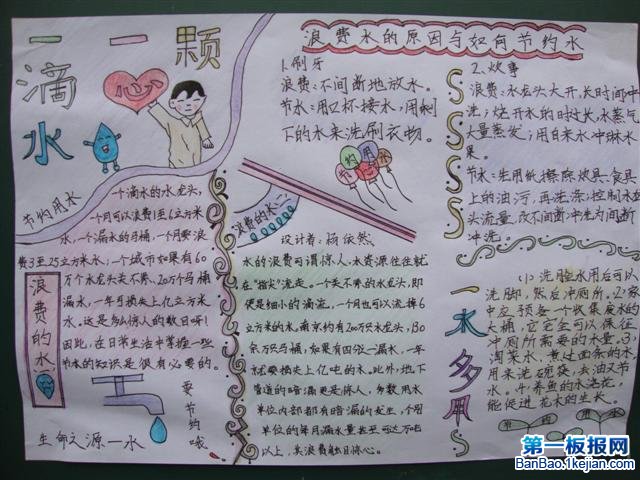 一滴水
一颗心
节约用水
一个滴水的水龙头,
一个月可以浪费1至6立方米
水,一个漏水的马桶,一个月要浪
费3至25立方米水;一个城市如果有60
万个水龙头关不劳、20万个马桶
漏水,一年可损失上亿立方米
水。这是多么惊人的数目呀!
因此,在日常生活中掌握一些
节水的知识是很有必要的。
浪费的水
要节约哦
生命之源—水
浪费水的原因与如何节约水
1.刷牙
浪费:不间断地放水。
节水:用口杯接水,用剩
下的水来洗刷衣物。
节约用水
浪费的水二
设计者:杨依然
水的浪费可谓惊人,水资源往往就
在“指尖”流走。一个关不劳的水龙头,即
使是细小的滴流,一个月也可以流掉6
立方米的水。南京约有200万只水龙头,130
余万只马桶,如果有四分之一漏水,一年
就要损失上亿吨的水。此外,地下
管道的暗漏更是惊人,多数用水
单位内部都有暗漏的发生,个别
单位的每月漏水量甚至可达万吨
以上,其浪费触目惊心。
2、炊事
浪费:水龙头大开,长时间冲
洗;烧开水的时间过长,水蒸气
大量蒸发;用自来水冲淋水
果。
节水:先用纸擦除炊具、食具
上的油污,再洗涤;控制水龙
头流量,改不间断冲洗为间断
冲洗。
一水多用
(1)洗脸水用后可以
洗脚,然后冲厕所。2.家
中应预备一个收集废水的
大桶,它完全可以保证
冲厕所需要的水量。3.
淘菜水,煮过面条的水
用来洗碗筷,去油又节
水。4.养鱼的水浇花,
能促进花木的生长。
节约用水
第一板报网
BanBao.1kejian.com